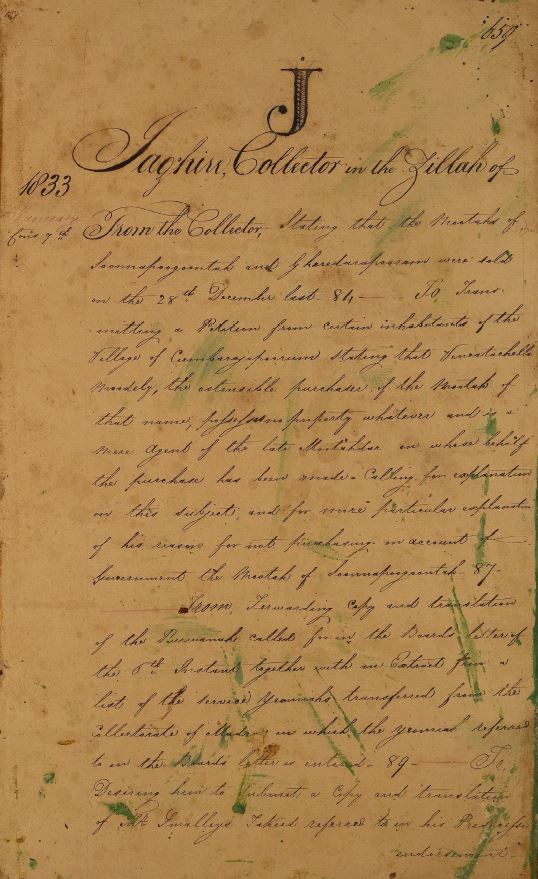 659
J
Jaghire, Collector in the Zillah of
1833
From the Collector, Stating that the Mootahs of
Soonnapoogoontah and Gharedarapooram were sold
on the 28th December last - 84 - To, Trans-
-mitting a Petition from certain inhabitants of the
Village of stating that Vencatachella
Moodely, the ostensible purchaser of the Mootah of
that name, possesses no property whatever and is a
mere Agent of the late Mootahdar on whose behalf
the purchase has been made - Calling for explanation
on this subject, and for more particular explanation
of his reasons for not purchasing on account of
Government the Mootah of Soonnapoogoontah - 87 -
From, Forwarding Copy and translation
of the Purwanah called for in the Boards letter of
the 6th Instant together with an Extract from a
list of the service Yeomiahs transferred from the
Collectorate of in which the yeomiah referred
to in the Boards letter is entered - 89 - To,
Desiring him to submit a Copy and translation
of Mr Smalleys Takeed referred to in his
endorsement